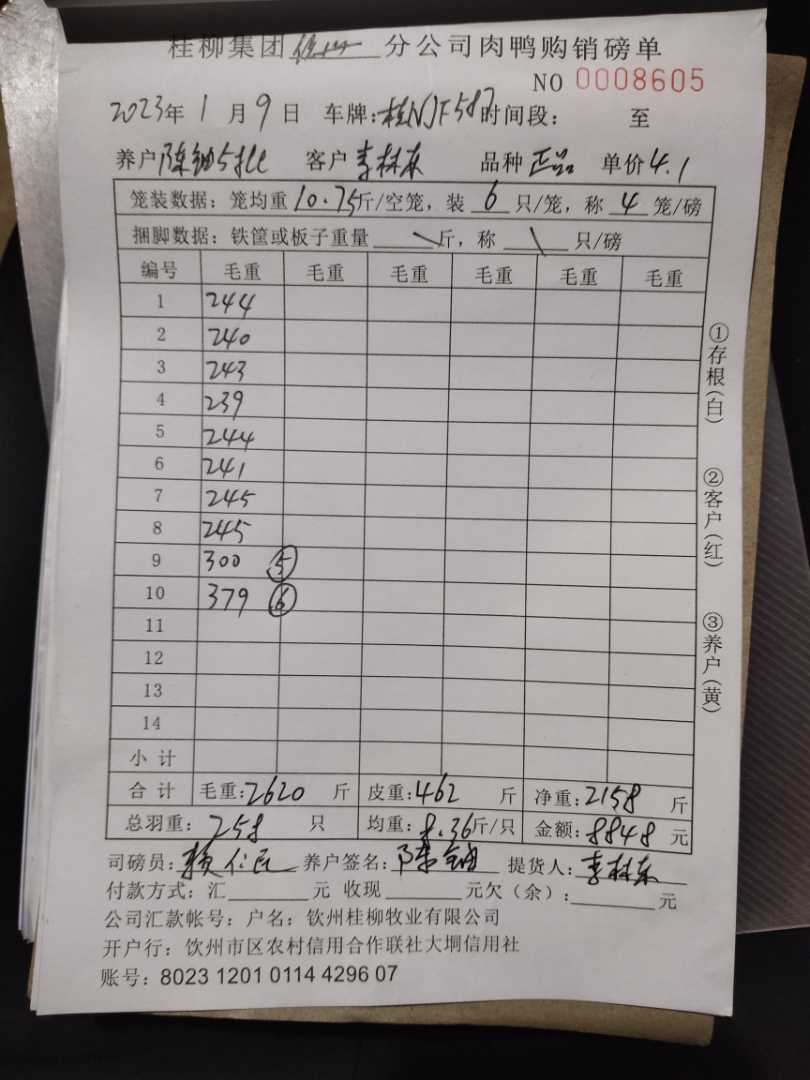 桂柳集团 分公司肉鸭购销磅单
NO 0008605
2023年1月9日 车牌:桂NJF587 时间段: 至
养户 陈铀 客户 李林东 品种 正品 单价 4.1
笼装数据:笼均重 10.75 斤/空笼,装 6 只/笼,称 4 笼/磅
捆脚数据:铁筐或板子重量 \ 斤,称 \ 只/磅
编号 毛重 毛重 毛重 毛重 毛重 毛重
1 244
2 240
3 243
4 239
5 244
6 241
7 245
8 245
9 300 ⑤
10 379 ⑥
11
12
13
14
小计
合计 毛重:2620 斤 皮重:462 斤 净重:2158 斤
总羽重: 258 只 均重:8.36斤/只 金额:8848元
司磅员:赖仁民 养户签名:陈铀 提货人:李林东
付款方式:汇 元 收现 元欠(余): 元
公司汇款帐号:户名:钦州桂柳牧业有限公司
开户行:钦州市区农村信用合作联社大垌信用社
账号:8023 1201 0114 4296 07
①存根(白)
②客户(红)
③养户(黄)